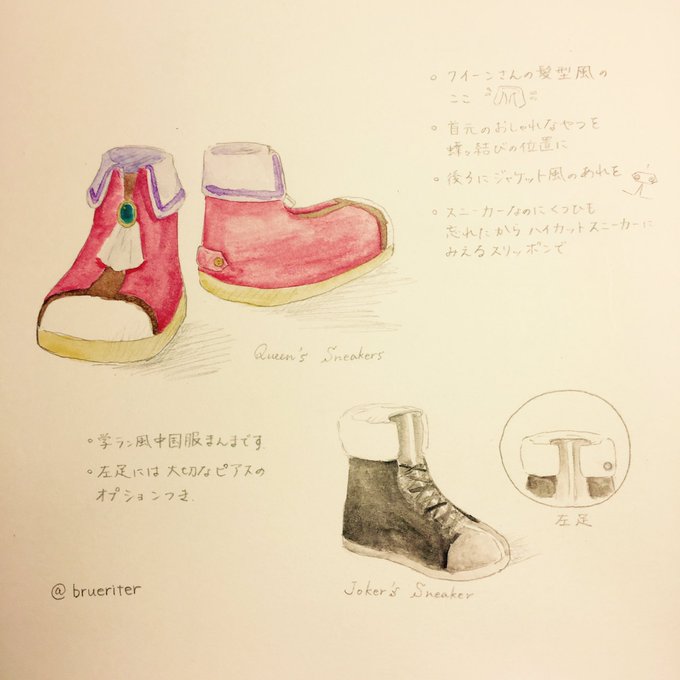 ○ クイーンさんの髪型風の
ここ
○ 首元のおしゃれなやつを
蝶々結びの位置に
○ 後ろにジャケット風のあれを
○ スニーカーなのにくつひも
忘れたから ハイカットスニーカーに
みえるスリッポンで
Queen's Sneakers
○ 学ラン風中国服まんまです。
○ 左足には 大切なピアスの
オプションつき。
左足
Joker's Sneaker
@brueriter